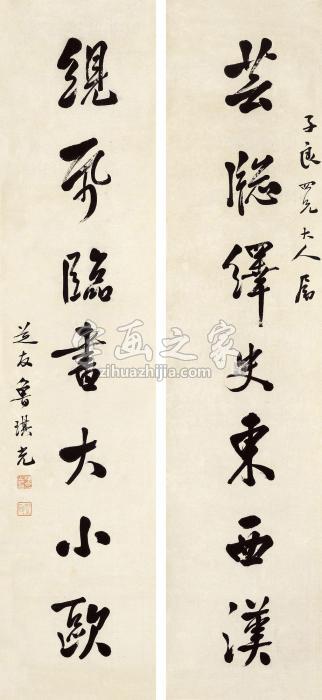 子良四兄大人属
芸牕繹史東西漢
絸帋臨書大小歐
芝友魯琪光
字画之家
zihuazhijia.com